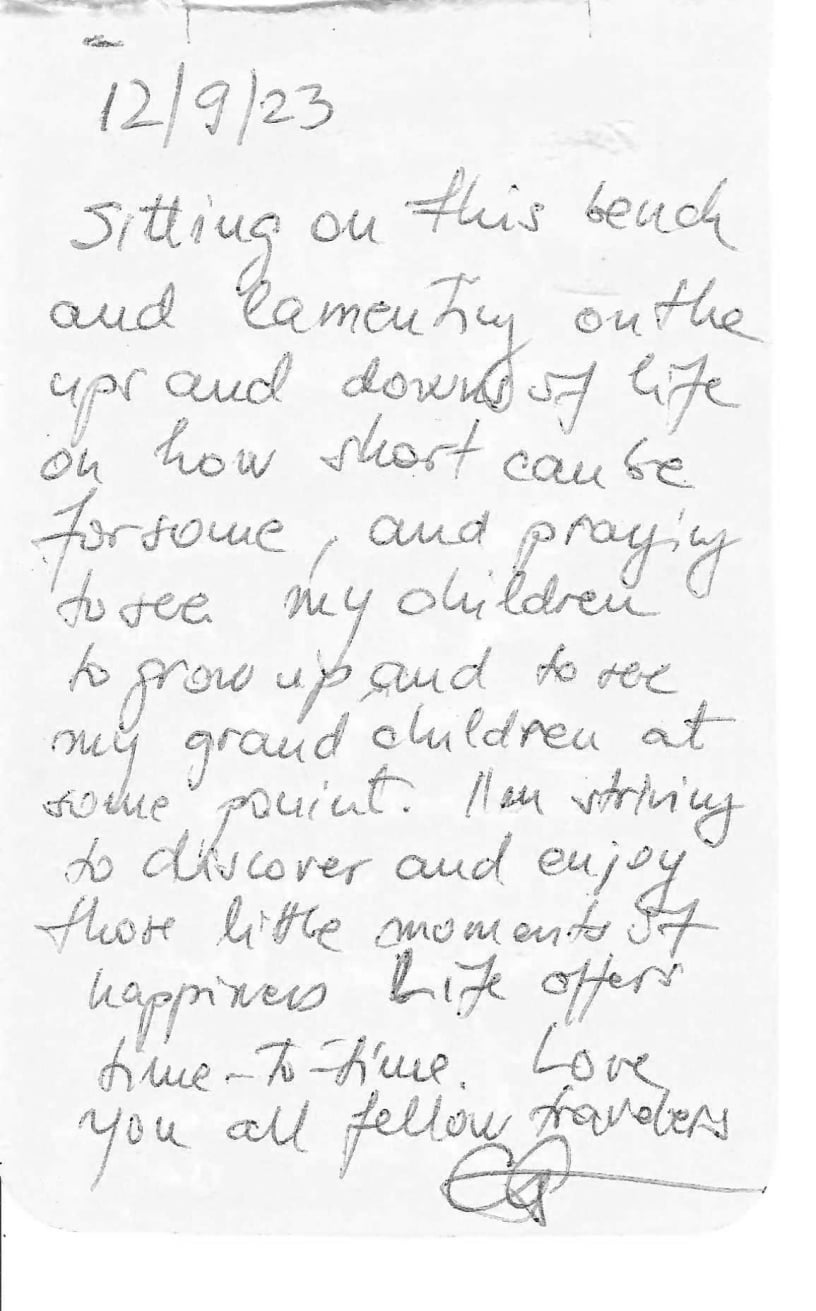 12/9/23
Sitting on this bench
and lamenting on the
ups and downs of life
on how short can be
for some, and praying
to see my children
to grow up and to see
my grand children at
some pouint. I'm striving
to discover and enjoy
those little moments of
happiness Life offers
time-to-time. Love
you all fellow travelers